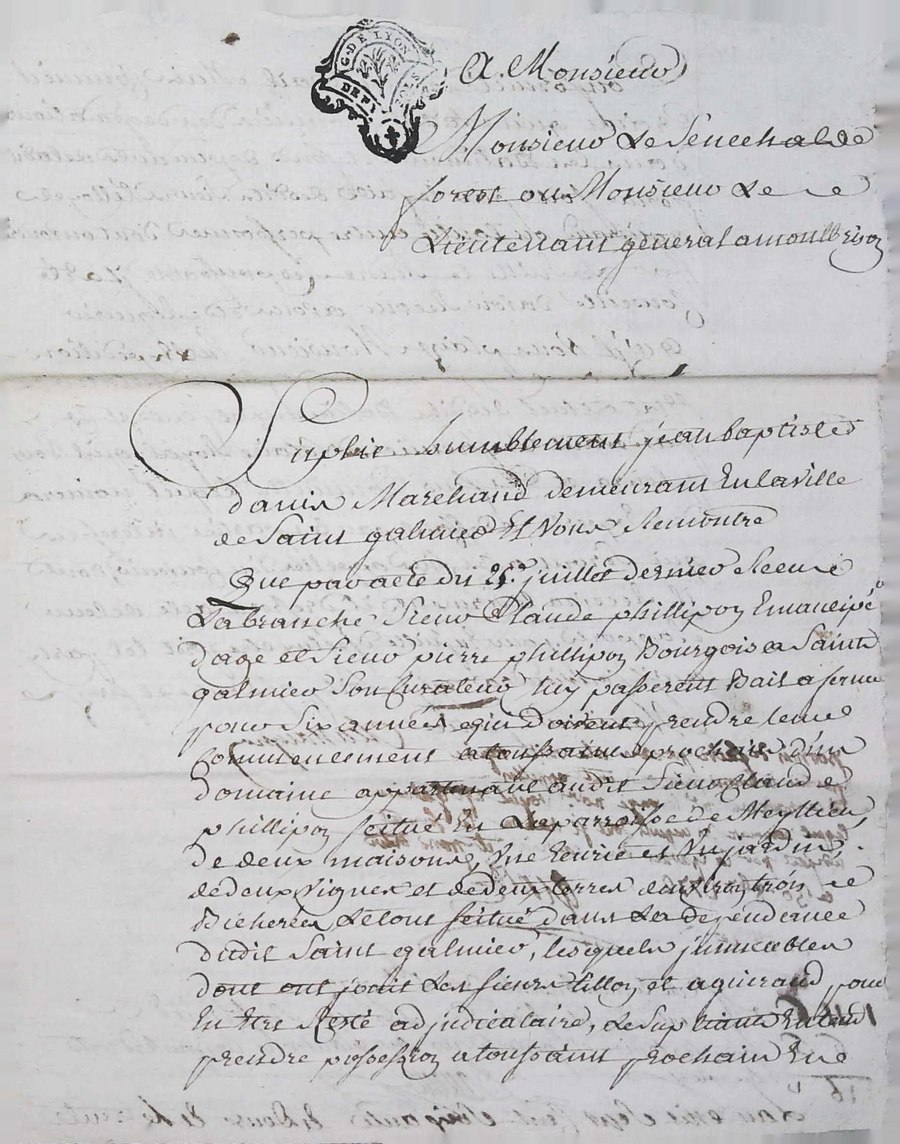 G. DE LYON
A. Monsieur
Monsieur Le Senechal de
forest ou Monsieur Le
Lieutenant general a montbrison
Suplie humblement jean baptiste
davin Marchand demeurant En la ville
de Saint galmier Et Vous Remontre
Que par acte du 25e. juillet dernier Receu
Labranche Sieur Claude phillipon Emancipé
dage et Sieur pierre phillipon Bourgois a Saint
galmier Son Curateur luy passerent Bail a ferme
pour Six années qui doivent prendre leur
Commencement a toussaint prochain d'un
domaine appartenant audit Sieur Claude
phillipon scitué En La parroisse de Meyllieu,
de deux maisons, Une Ecurie et Un jardin,
de deux Vignes et de deux terres trois
Bicherées Le tout scitué dans La dependance
dudit Saint galmier, lesquels jmmeubles
dont ont jouit Les sieurs tillon et aguiraud pour
En Etre Resté adjudicataire, Le Supliant Entend
prendre possession a toussaint prochain En